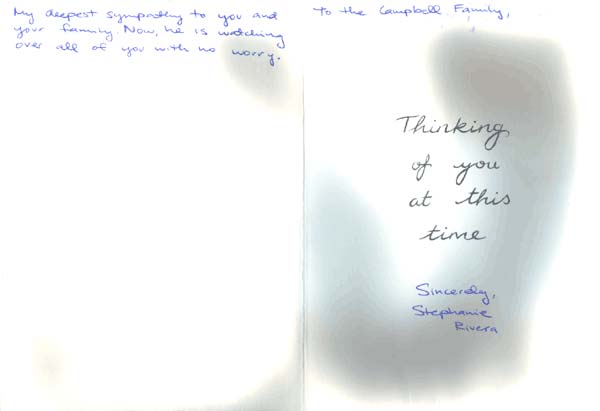 My deepest sympathy to you and
your family. Now, he is watching
over all of you with no worry.
To the Campbell Family,
Thinking
of you
at this
time
Sincerely,
Stephanie
Rivera